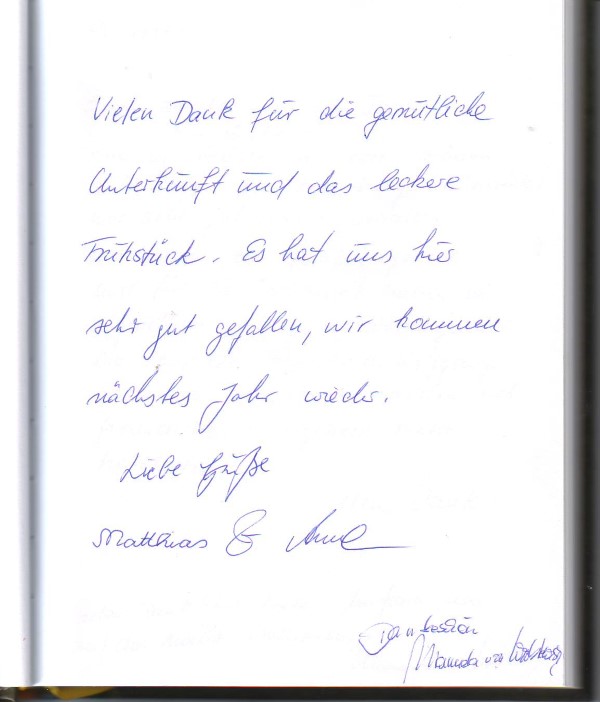 Vielen Dank für die gemütliche
Unterkunft und das leckere
Frühstück. Es hat uns hier
sehr gut gefallen, wir kommen
nächstes Jahr wieder.
Liebe Grüße
Matthias &
Dankeschön